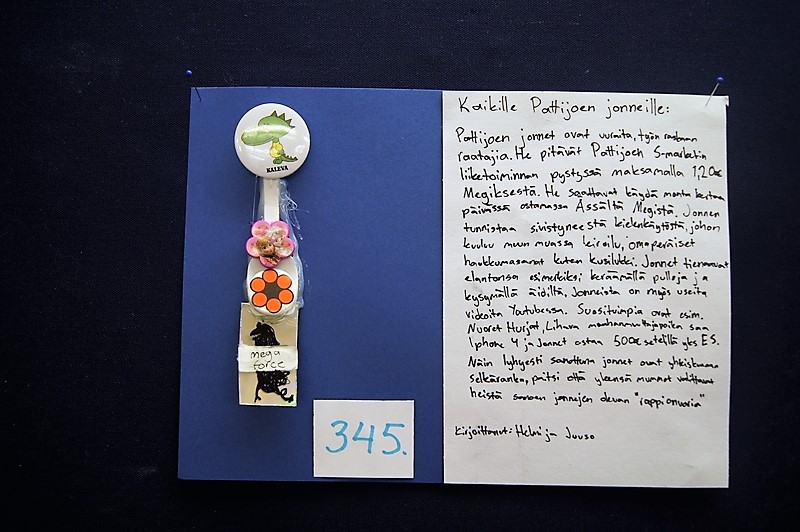 KALEVA
mega
force
345.
Kaikille Pattijoen jonneille:
Pattijoen jonnet ovat uuraita, työn raskaan
raatajia. He pitävät Pattijoen S-marketin
liiketoiminnan pystyssä maksamalla 1,20€
Megiksestä. He saattavat käydä monta kertaa
päivässä ostamassa Ässältä Megistä. Jonnen
tunnistaa sivistyneestä kielenkäytöstä, johon
kuuluu muun muassa kiroilu, omaperäiset
haukkumasanat kuten kusilukki. Jonnet tienaavat
elantonsa esimerkiksi keräämällä pulloja ja
kysymällä äidiltä. Jonneista on myös useita
videoita Youtubessa. Suosituimpia ovat esim.
Nuoret Hurjat, Lihava maahanmuuttajapoika saa
Iphone 4 ja Jonnet ostaa 500€ setelillä yks ES.
Näin lyhyesti sanottuna jonnet ovat yhteiskunnan
selkäranka, paitsi että yleensä mummot valittavat
heistä sanoen jonnejen olevan "rappionuoria"
Kirjoittanut: Helmi ja Juuso